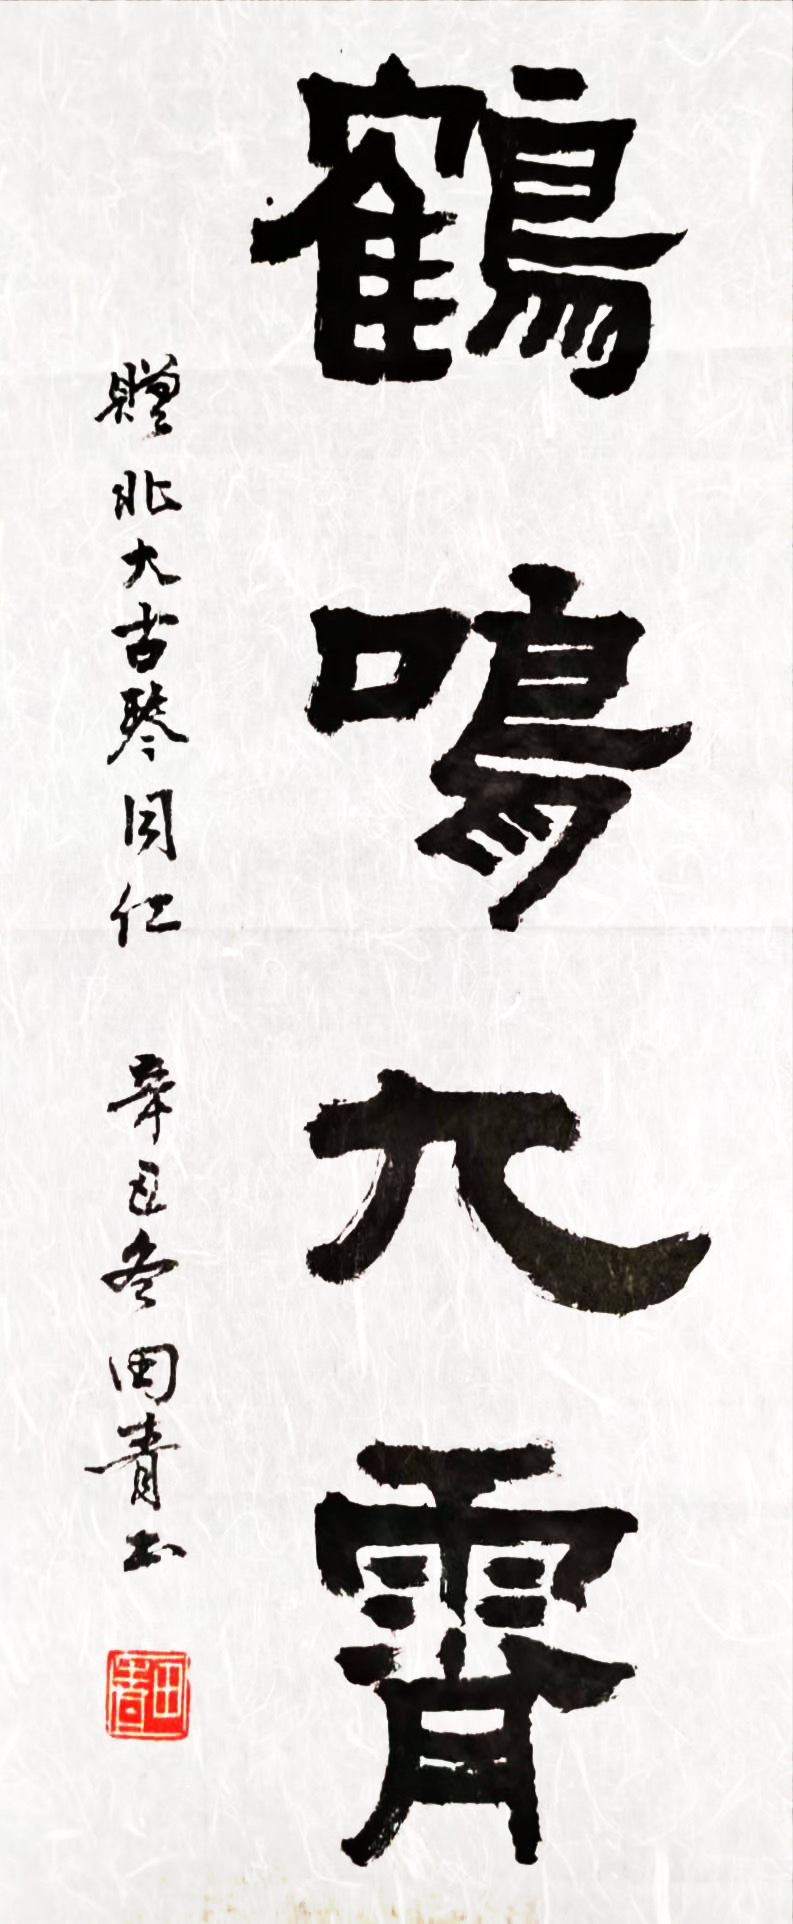 鶴鳴九霄
贈北大古琴同仁 辛丑冬 田青书
田青